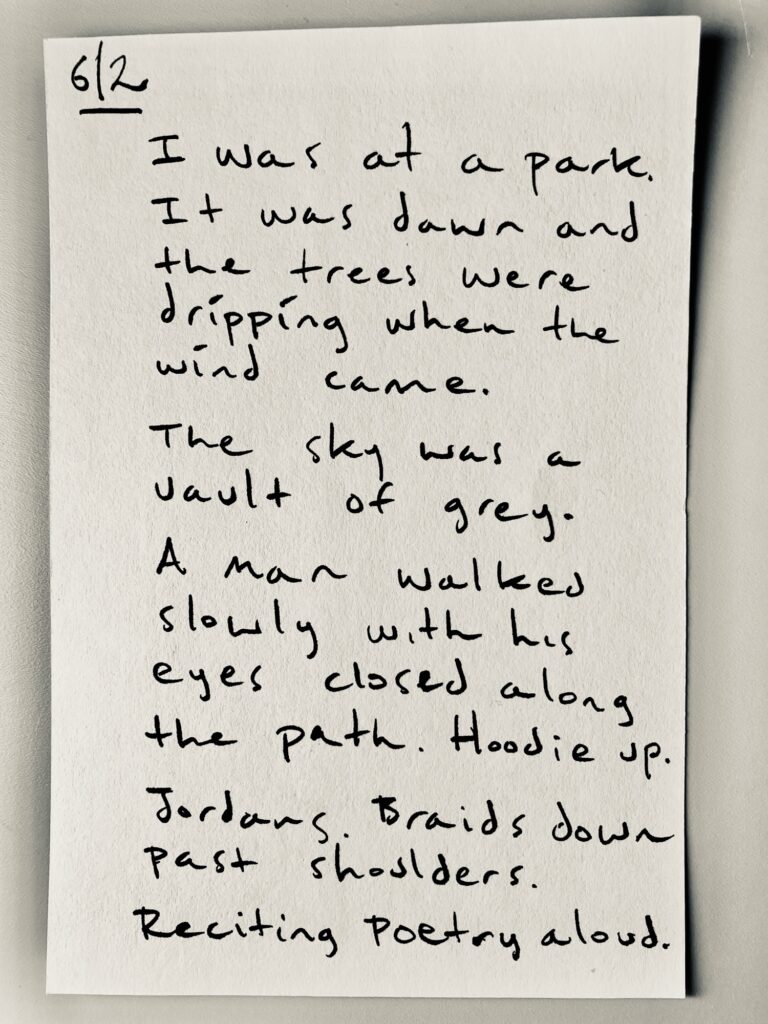 6/2
I was at a park.
It was dawn and
the trees were
dripping when the
wind came.
The sky was a
vault of grey.
A man walked
slowly with his
eyes closed along
the path. Hoodie up.
Jordans. Braids down
past shoulders.
Reciting poetry aloud.